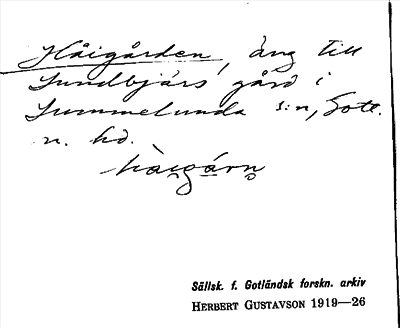 Håigården, äng till
Sundbjärs gård i
Lummelunda s:n, Gotl.
n. hd.
hàigárn
Sällsk. f. Gotländsk forskn. arkiv
HERBERT GUSTAVSON 1919—26